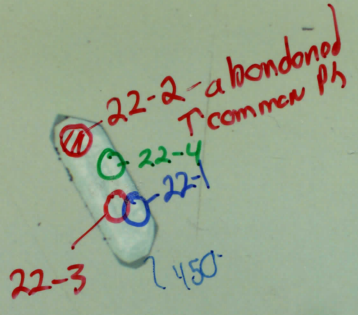 22-2-abondoned
↑common Pb
22-4
22-1
22-3
450